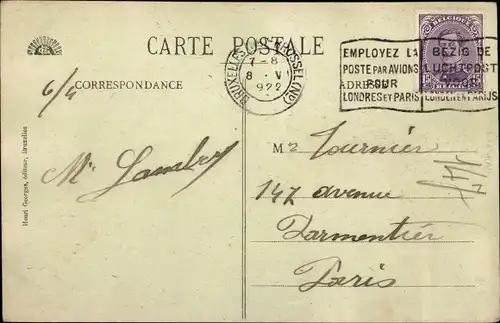 CARTE POSTALE
CORRESPONDANCE
ADRESSE
BRUXELLES BRUSSEL (ND)
7-8
8 V
1922
EMPLOYEZ LA
POSTE PAR AVIONS
POUR
LONDRES ET PARIS
BEZIG DE
LUCHTPOST
VOOR
LONDEN EN PARIJS
BELGIQUE
15
6/4
Henri Georges, éditeur, Bruxelles
Mr Lambry
Mr Tournier
147 avenue
Parmentier
Paris